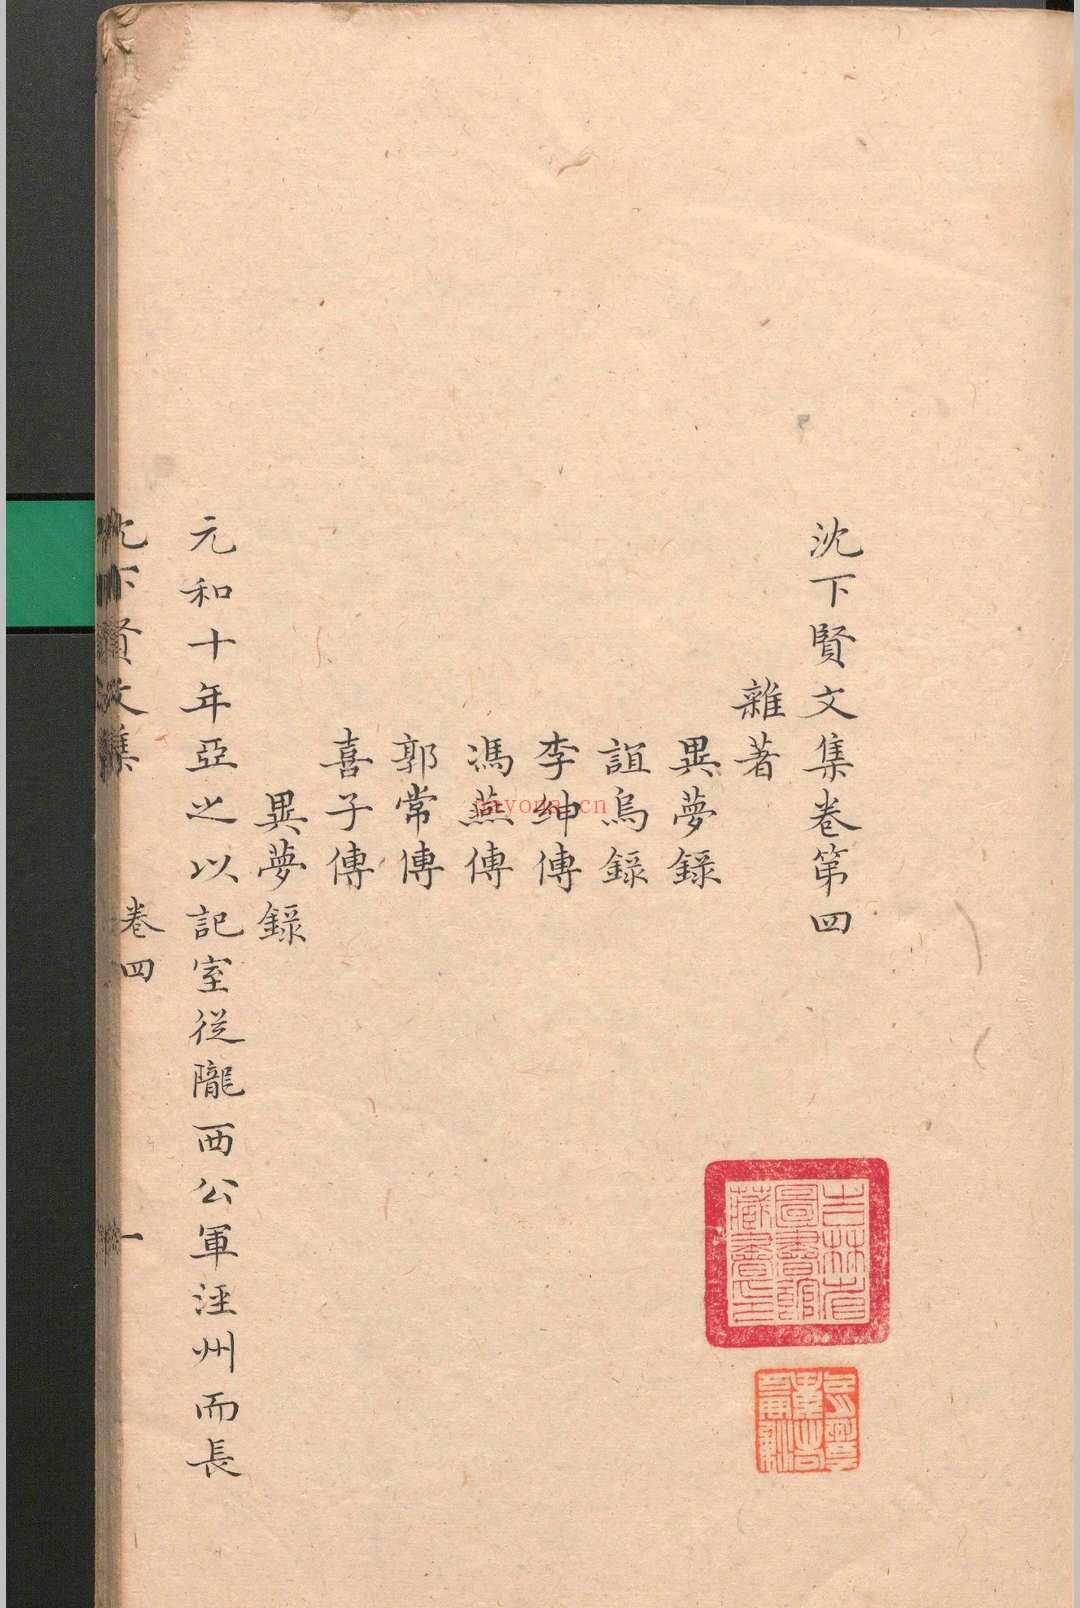 沈下賢文集卷第四
雜著
異夢錄
誼鳥錄
李紳傳
馮燕傳
郭常傳
喜子傳
異夢錄
元和十年亞之以記室從隴西公軍涇州而長
沈下賢文集 卷四 一
吉林省圖書館藏書之印